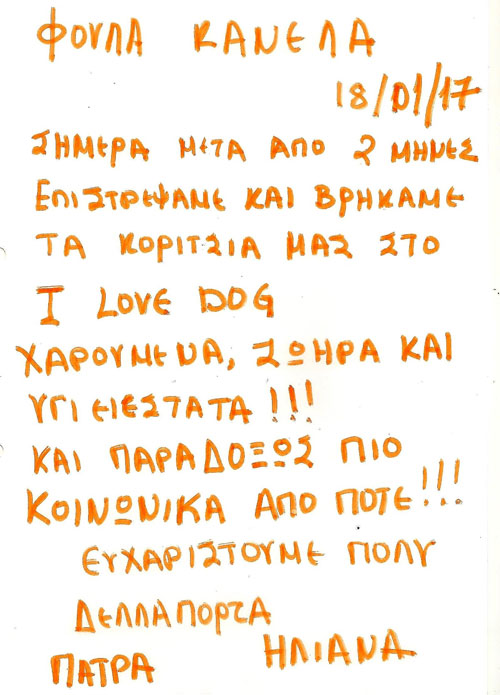 ΦΟΥΛΑ ΚΑΝΕΛΑ
18/01/17
ΣΗΜΕΡΑ ΜΕΤΑ ΑΠΟ 2 ΜΗΝΕΣ
ΕΠΙΣΤΡΕΨΑΜΕ ΚΑΙ ΒΡΗΚΑΜΕ
ΤΑ ΚΟΡΙΤΣΙΑ ΜΑΣ ΣΤΟ
I LOVE DOG
ΧΑΡΟΥΜΕΝΑ, ΖΩΗΡΑ ΚΑΙ
ΥΓΙΕΙΕΣΤΑΤΑ!!!
ΚΑΙ ΠΑΡΑΔΟΞΩΣ ΠΙΟ
ΚΟΙΝΩΝΙΚΑ ΑΠΟ ΠΟΤΕ!!!
ΕΥΧΑΡΙΣΤΟΥΜΕ ΠΟΛΥ
ΔΕΛΛΑΠΟΡΤΑ
ΗΛΙΑΝΑ
ΠΑΤΡΑ